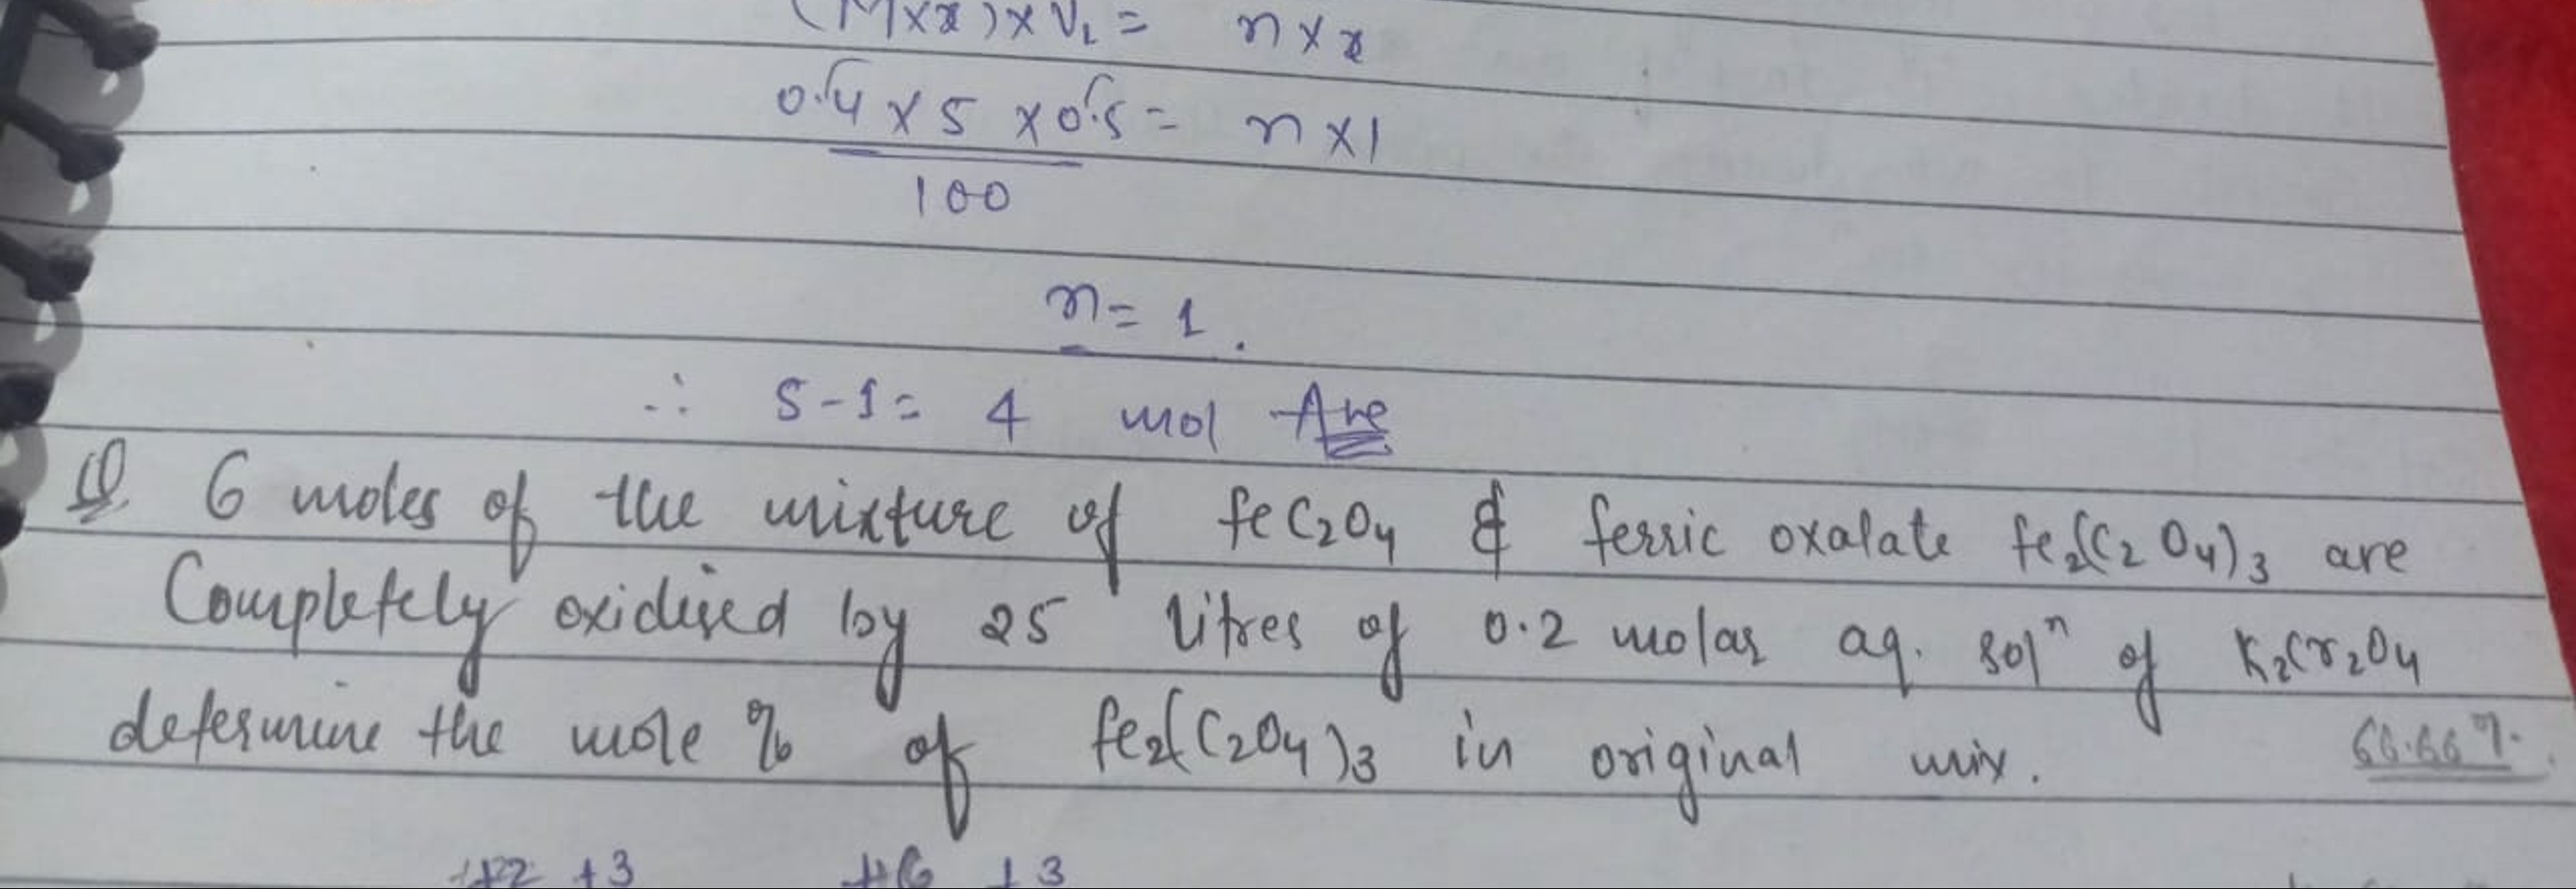 (M×x)×V_L = n×x
0.4 × 5 × 0.5 = n×1
100
n = 1.
∴ 5-1 = 4 mol Ans
Q 6 moles of the mixture of feC₂O₄ & ferric oxalate fe₂(C₂O₄)₃ are
Completely oxidised by 25 litres of 0.2 molar aq. solⁿ of K₂Cr₂O₄
determine the mole % of fe₂(C₂O₄)₃ in original mix. 66.66%.
+2 +3 +6 +3